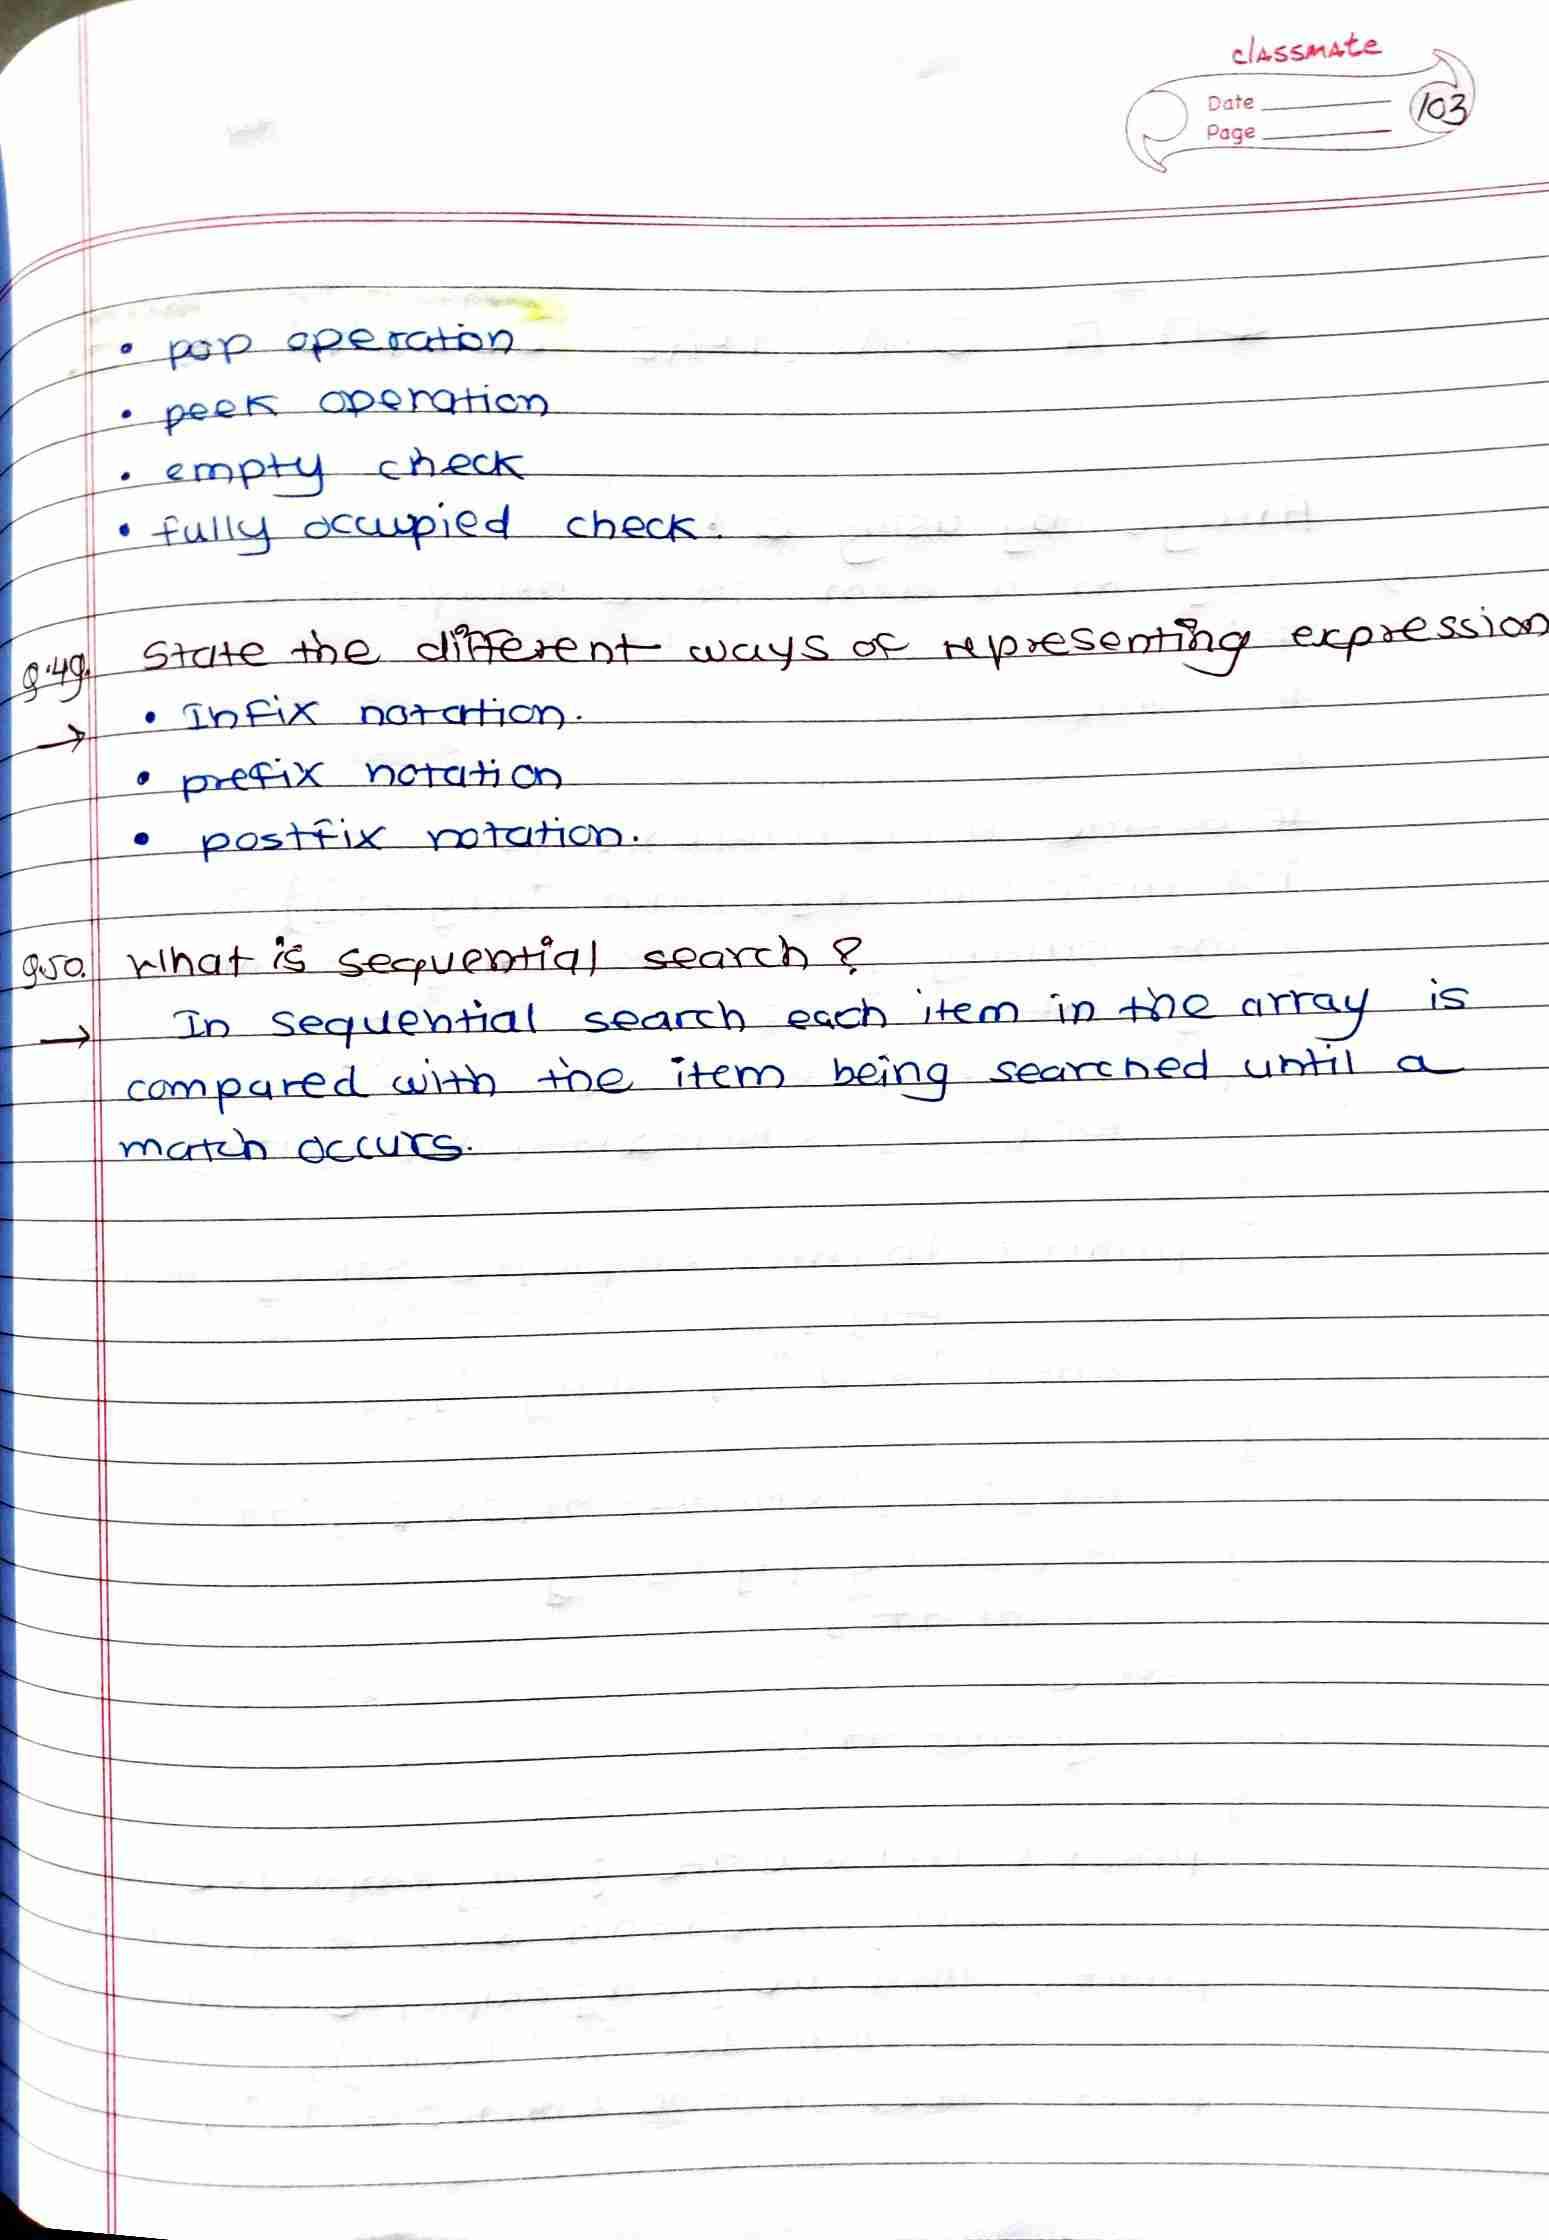 classmate
Date
Page
103
• pop operation
• peek operation
• empty check
• fully occupied check.
Q.49. State the different ways of representing expression
→ • Infix notation.
• prefix notation
• postfix notation.
Q.50. What is sequential search?
→ In sequential search each item in the array is
compared with the item being searched until a
match occurs.